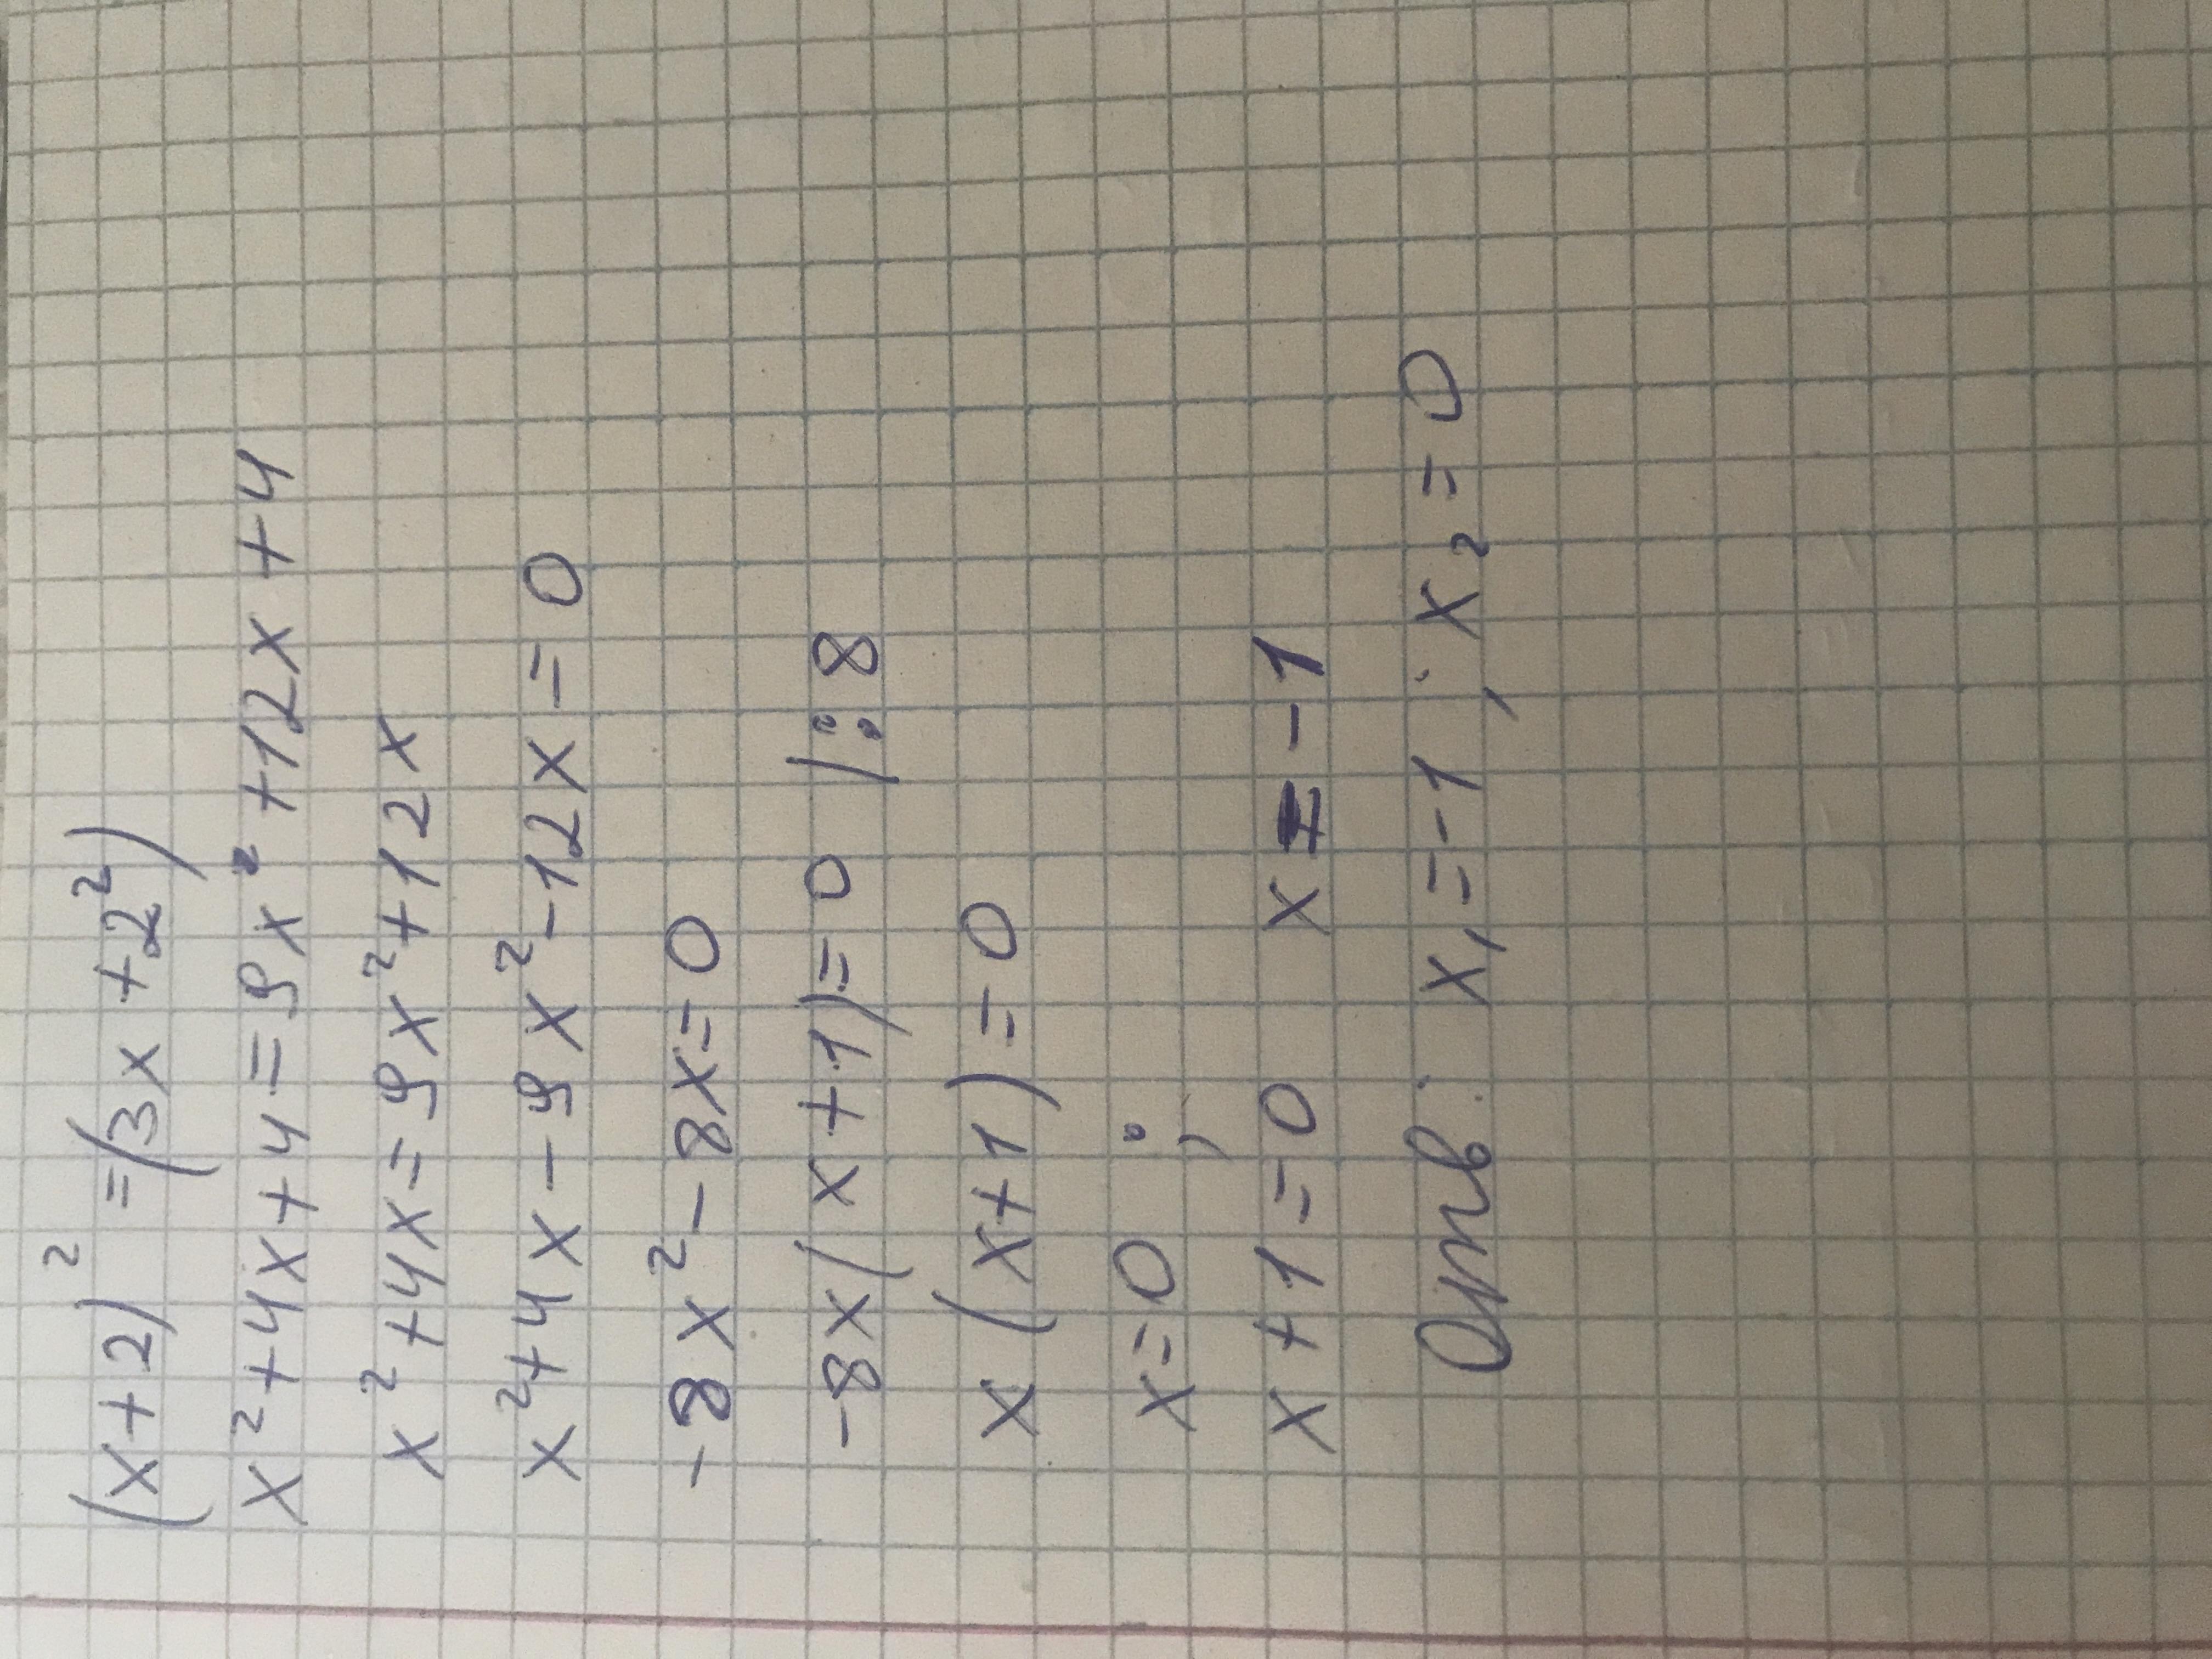 (x+2)² =(3x+2²)
x²+4x+4=9x²+12x+4
x²+4x=9x²+12x
x²+4x-9x²-12x=0
-8x²-8x=0
-8x(x+1)=0 /:8
x(x+1)=0
x=0 ;
x+1=0 x=-1
Отв: x₁=-1; x₂=0